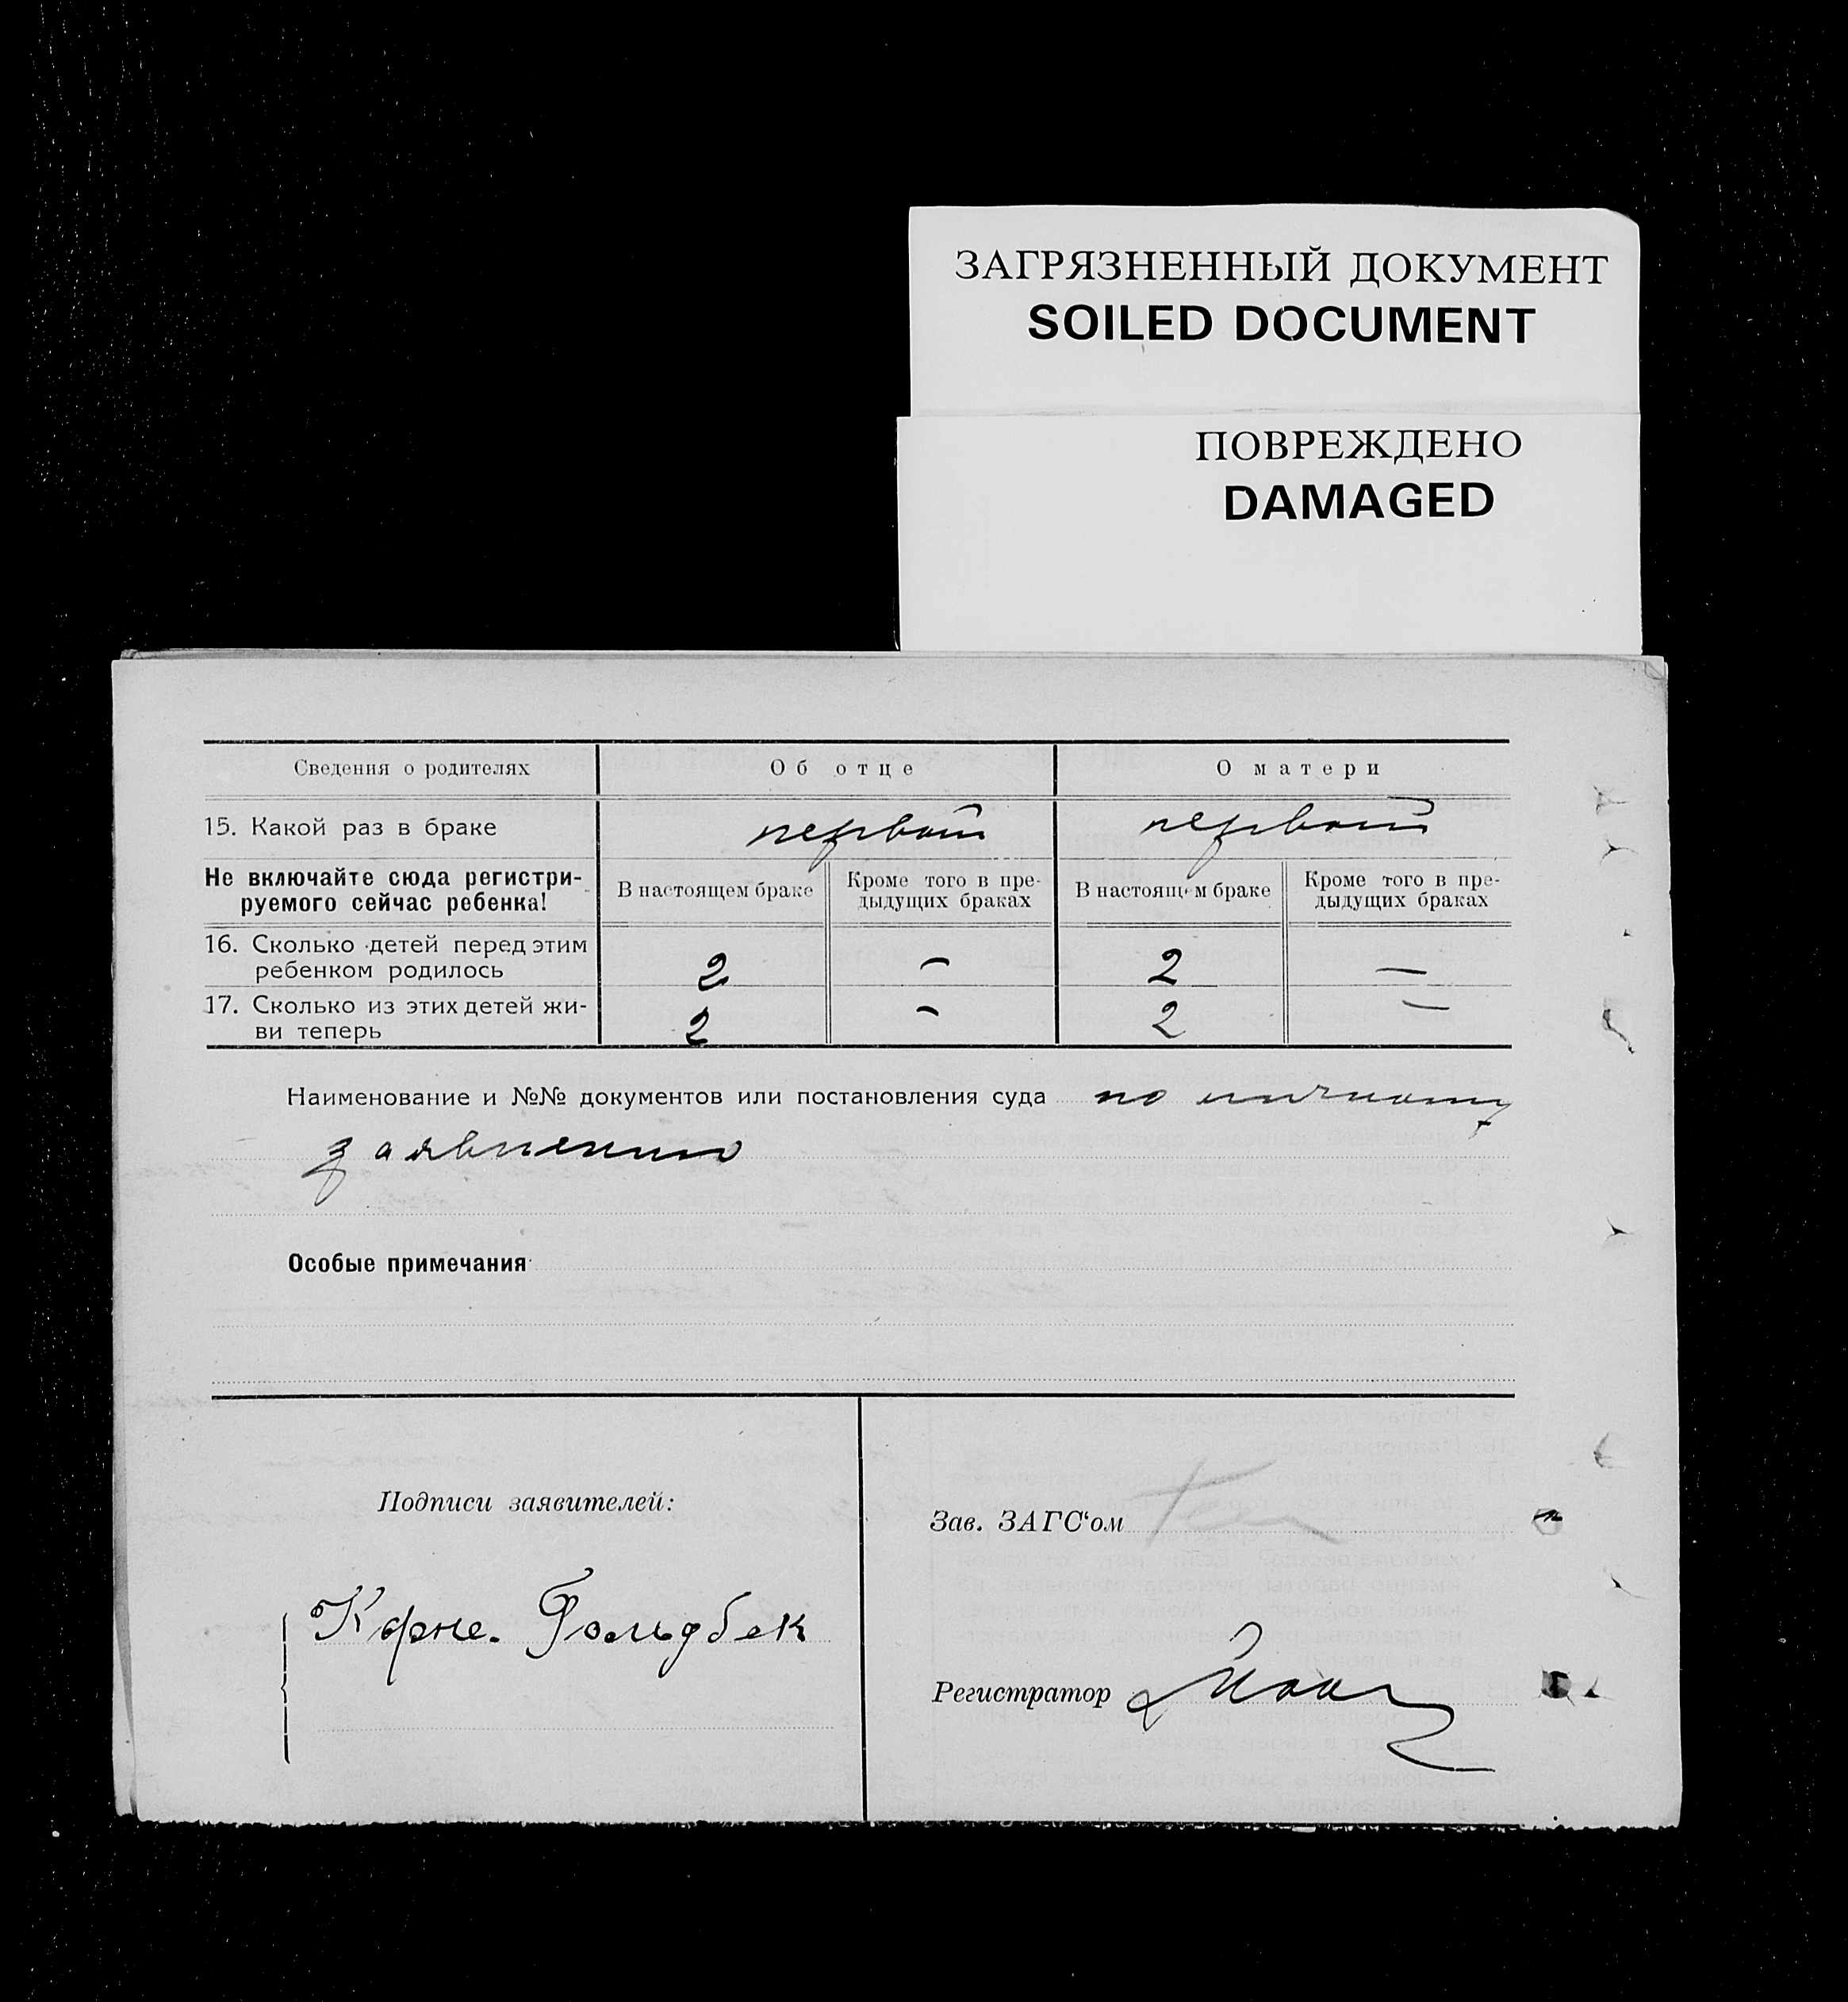 ЗАГРЯЗНЕННЫЙ ДОКУМЕНТ
SOILED DOCUMENT
ПОВРЕЖДЕНО
DAMAGED
Сведения о родителях Об отце О матери
15. Какой раз в браке первый первый
Не включайте сюда регистри-
руемого сейчас ребенка!
В настоящем браке
Кроме того в пре-
дыдущих браках
В настоящем браке
Кроме того в пре-
дыдущих браках
16. Сколько детей перед этим
ребенком родилось 2 – 2 –
17. Сколько из этих детей жи-
ви теперь 2 – 2 –
Наименование и №№ документов или постановления суда по личному
заявлению
Особые примечания
Подписи заявителей:
Корне. Гольдбек
Зав. ЗАГС‘ом
Регистратор